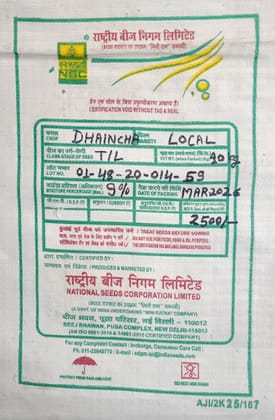 राष्ट्रीय बीज निगम लिमिटेड
(भारत सरकार का उपक्रम "मिनी रत्न" कम्पनी)
NSC
टैग एवं सील के बिना प्रमाणीकरण अमान्य है।
CERTIFICATION VOID WITHOUT TAG & SEAL
फसल CROP DHAINCHA VARIETY LOCAL
बीज का वर्ग-श्रेणी CLASS-STAGE OF SEED T/L
लॉट नम्बर LOT NO. 01-48-20-014-59
MOISTURE PERCENTAGE (MAX.) 9% पैक करने की तिथि DATE OF PACKING MAR2026
2500/-
बुआई पूर्व बीज को उपचारित करें
TREAT SEEDS BEFORE SOWING
DO NOT USE FOR FOOD, FEED & OIL PURPOSE.
द्वारा प्रमाणित / CERTIFIED BY
उत्पादक एवं विक्रेता / PRODUCED & MARKETED BY :
राष्ट्रीय बीज निगम लिमिटेड
NATIONAL SEEDS CORPORATION LIMITED
(भारत सरकार का उपक्रम "मिनी रत्न" कम्पनी)
(A GOVT. OF INDIA UNDERTAKING "MINI-RATNA" COMPANY)
बीज भवन, पूसा परिसर, नई दिल्ली - 110012
BEEJ BHAWAN, PUSA COMPLEX, NEW DELHI-110012
For any Complaint Contact : Incharge, Consumer Care Cell :
PROTECT FROM RAIN
USE NO HOOK
AJI/2K25/167